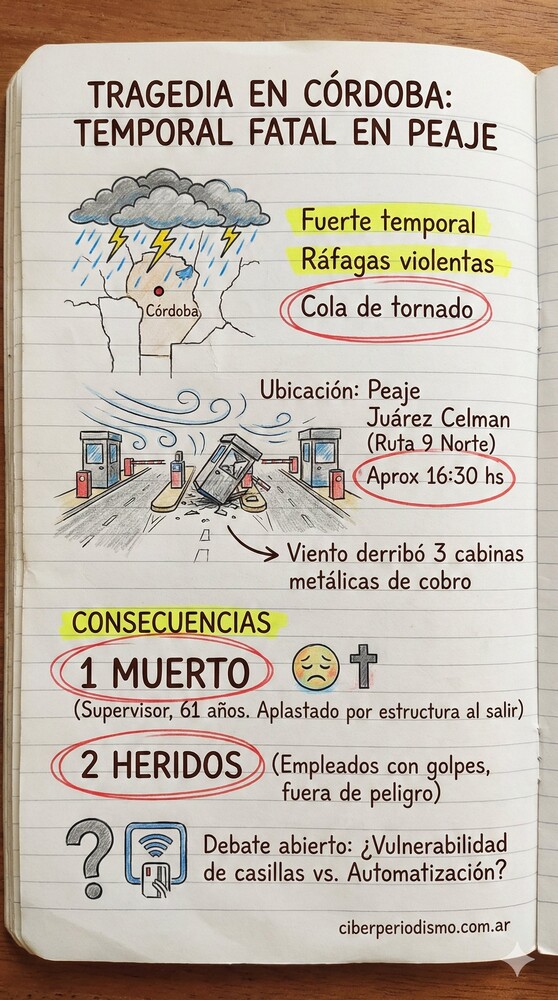 TRAGEDIA EN CÓRDOBA:
TEMPORAL FATAL EN PEAJE
Fuerte temporal
Ráfagas violentas
Cola de tornado
Córdoba
Ubicación: Peaje
Juárez Celman
(Ruta 9 Norte)
Aprox 16:30 hs
Viento derribó 3 cabinas
metálicas de cobro
CONSECUENCIAS
1 MUERTO
(Supervisor, 61 años. Aplastado por estructura al salir)
2 HERIDOS
(Empleados con golpes,
fuera de peligro)
?
Debate abierto: ¿Vulnerabilidad
de casillas vs. Automatización?
ciberperiodismo.com.ar